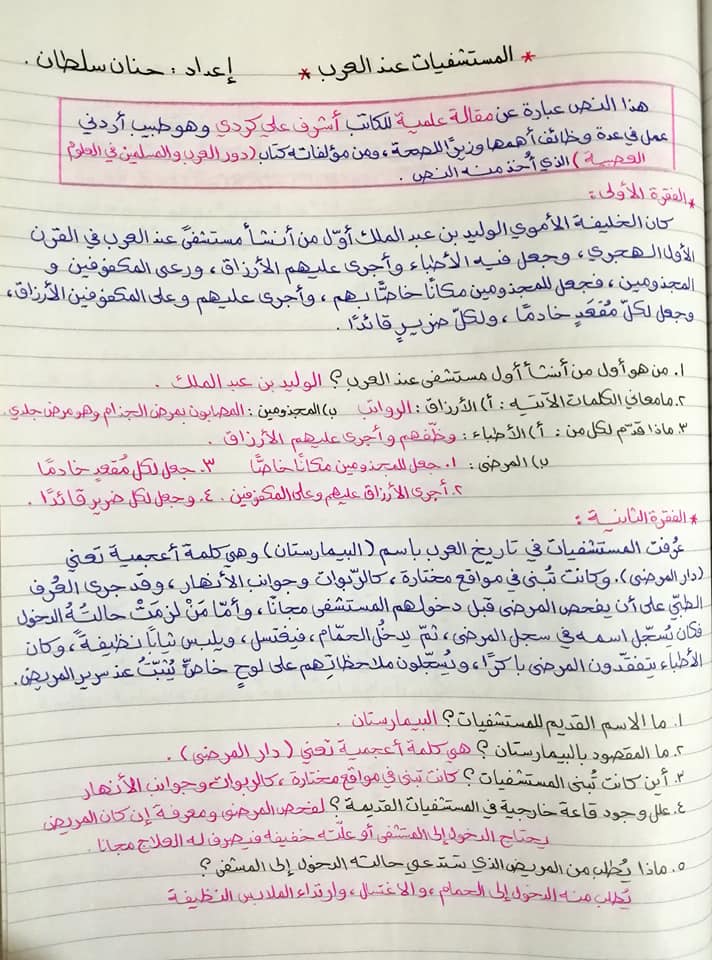 * المستشفيات عند العرب * إعداد : حنان سلطان .
هذا النص عبارة عن مقالة علمية للكاتب أشرف علي كردي وهو طبيب أردني
عمل في عدة وظائف أهمها وزيرًا للصحة ، ومن مؤلفاته كتاب (دور العرب والمسلمين في العلوم
العصبية) الذي أُخذ منه النص .
* الفقرة الأولى :
كان الخليفة الأموي الوليد بن عبد الملك أوّل من أنشأ مستشفىً عند العرب في القرن
الأول الهجري ، وجعل فيه الأطباء وأجرى عليهم الأرزاق ، ورعى المكفوفين و
المجذومين ، فجعل للمجذومين مكانًا خاصًّا بهم ، وأجرى عليهم وعلى المكفوفين الأرزاق،
وجعل لكلّ مُقعَدٍ خادمًا ، ولكلّ ضريرٍ قائدًا .
١. من هو أول من أنشأ أول مستشفى عند العرب ؟ الوليد بن عبد الملك .
٢. ما معاني الكلمات الآتية : أ) الأرزاق : الرواتب ب) المجذومين : المصابون بمرض الجذام وهو مرض جلدي.
٣. ماذا قدّم لكل من : أ) الأطباء : وظّفهم وأجرى عليهم الأرزاق .
ب) المرضى : ١. جعل للمجذومين مكانًا خاصًّا ٣. جعل لكل مُقعدٍ خادمًا
٢. أجرى الأرزاق عليهم وعلى المكفوفين . ٤. وجعل لكل ضرير قائدًا .
* الفقرة الثانية :
عُرفت المستشفيات في تاريخ العرب باسم (البيمارستان) وهي كلمة أعجمية تعني
(دار المرضى)، وكانت تُبنى في مواقع مختارة ، كالرّبوات وجوانب الأنهار ، وقد جرى العُرف
الطبّي على أن يفحص المرضى قبل دخولهم المستشفى مجانًا، وأمّا مَنْ لزمتْ حالتهُ الدخول
فكان يُسجّل اسمه في سجل المرضى ، ثمّ يدخُل الحمّام، فيغتسل ، ويلبس ثيابًا نظيفةً ، وكان
الأطباء يتفقّدون المرضى باكرًا ، ويُسجّلون ملاحظاتِهم على لوحٍ خاصٍّ يُثبّتُ عند سرير المريض.
١. ما الاسم القديم للمستشفيات ؟ البيمارستان .
٢. ما المقصود بالبيمارستان ؟ هي كلمة أعجمية تعني (دار المرضى) .
٣. أين كانت تُبنى المستشفيات ؟ كانت تبنى في مواقع مختارة ، كالربوات وجوانب الأنهار
٤. علل وجود قاعة خارجية في المستشفيات القديمة ؟ لفحص المرضى ومعرفة إن كان المريض
يحتاج الدخول إلى المستشفى أو علّته خفيفة فيصرف له العلاج مجانا .
٥. ماذا يُطلب من المريض الذي تستدعي حالته الدخول إلى المستفى ؟
يُطلب منه الدخول إلى الحمام ، والاغتسال ، وارتداء الملابس النظيفة